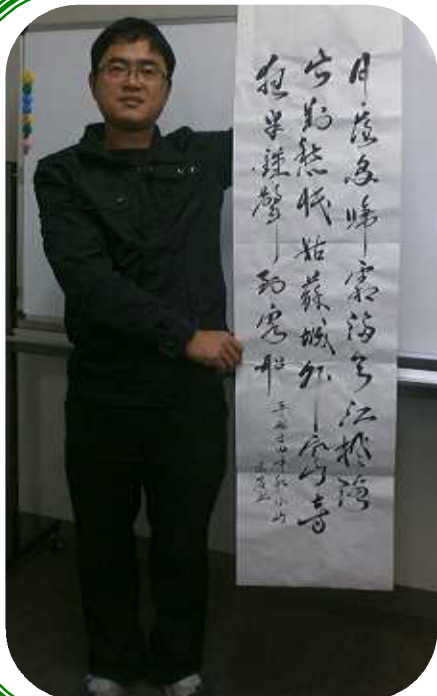 月落烏啼霜滿天江楓漁
火對愁眠姑蘇城外寒山寺
夜半鐘聲到客船